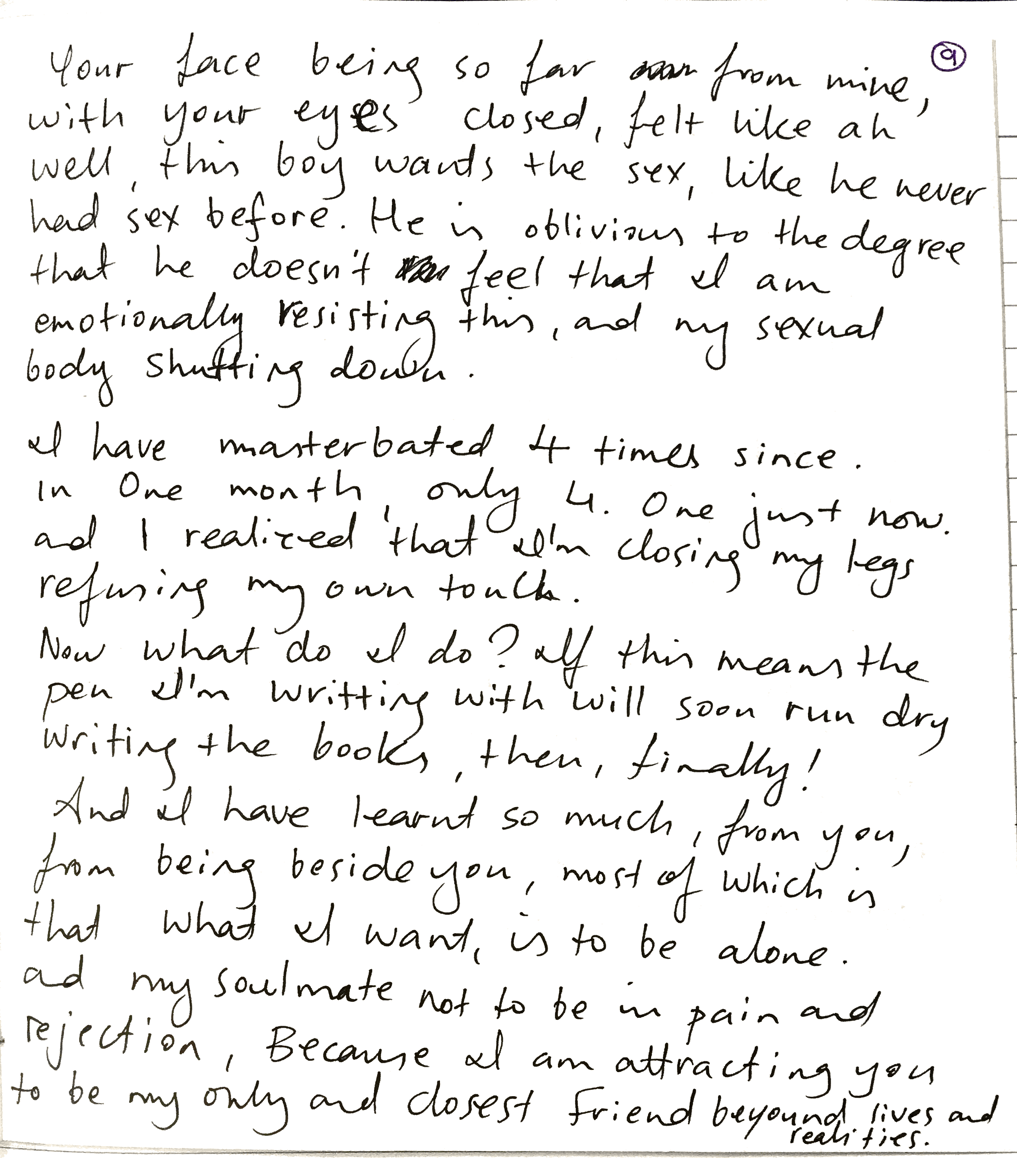 9
Your face being so far from mine,
with your eyes closed, felt like ah
well, this boy wants the sex, like he never
had sex before. He is oblivious to the degree
that he doesn't feel that I am
emotionally resisting this, and my sexual
body shutting down.
I have masterbated 4 times since.
In One month, only 4. One just now.
and I realized that I'm closing my legs
refusing my own touch.
Now what do I do? If this means the
pen I'm writting with will soon run dry
writing the books, then, finally!
And I have learnt so much, from you,
from being beside you, most of which is
that what I want, is to be alone.
ad my soulmate not to be in pain and
rejection, Because I am attracting you
to be my only and closest friend beyound lives and
realities.